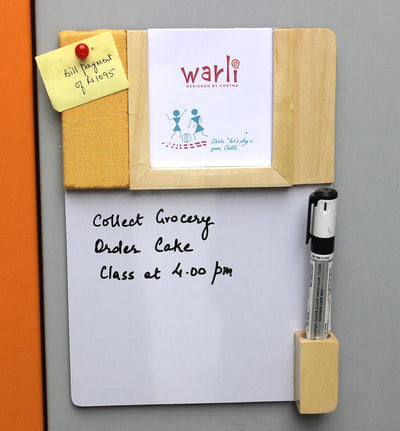 Bill payment
of ₹1095
warli
DESIGNED BY CHETNA
"let's play a
Collect Grocery
Order Cake
Class at 4.00 pm